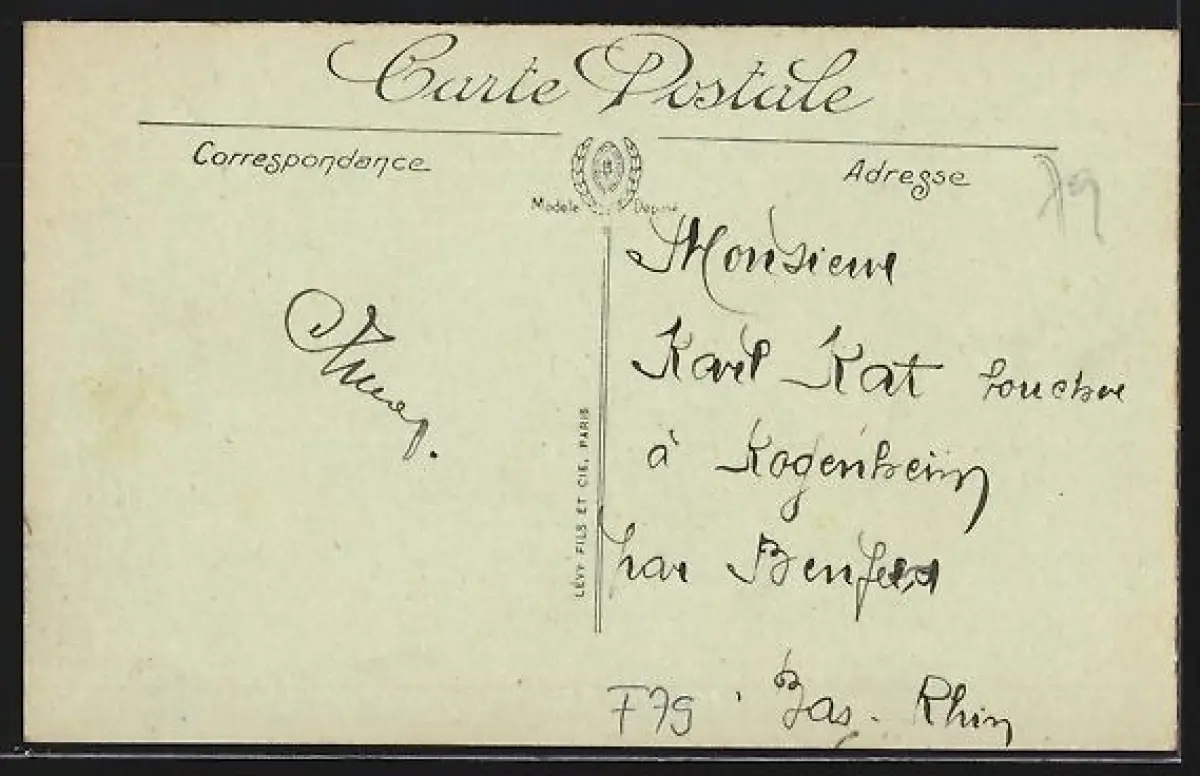 Carte Postale
Correspondance
Adresse
79
Modèle Déposé
Monsieur
Karl Kat boucher
à Kogenheim
par Benfeld
Bas. Rhin
F79
LÉVY FILS ET CIE, PARIS